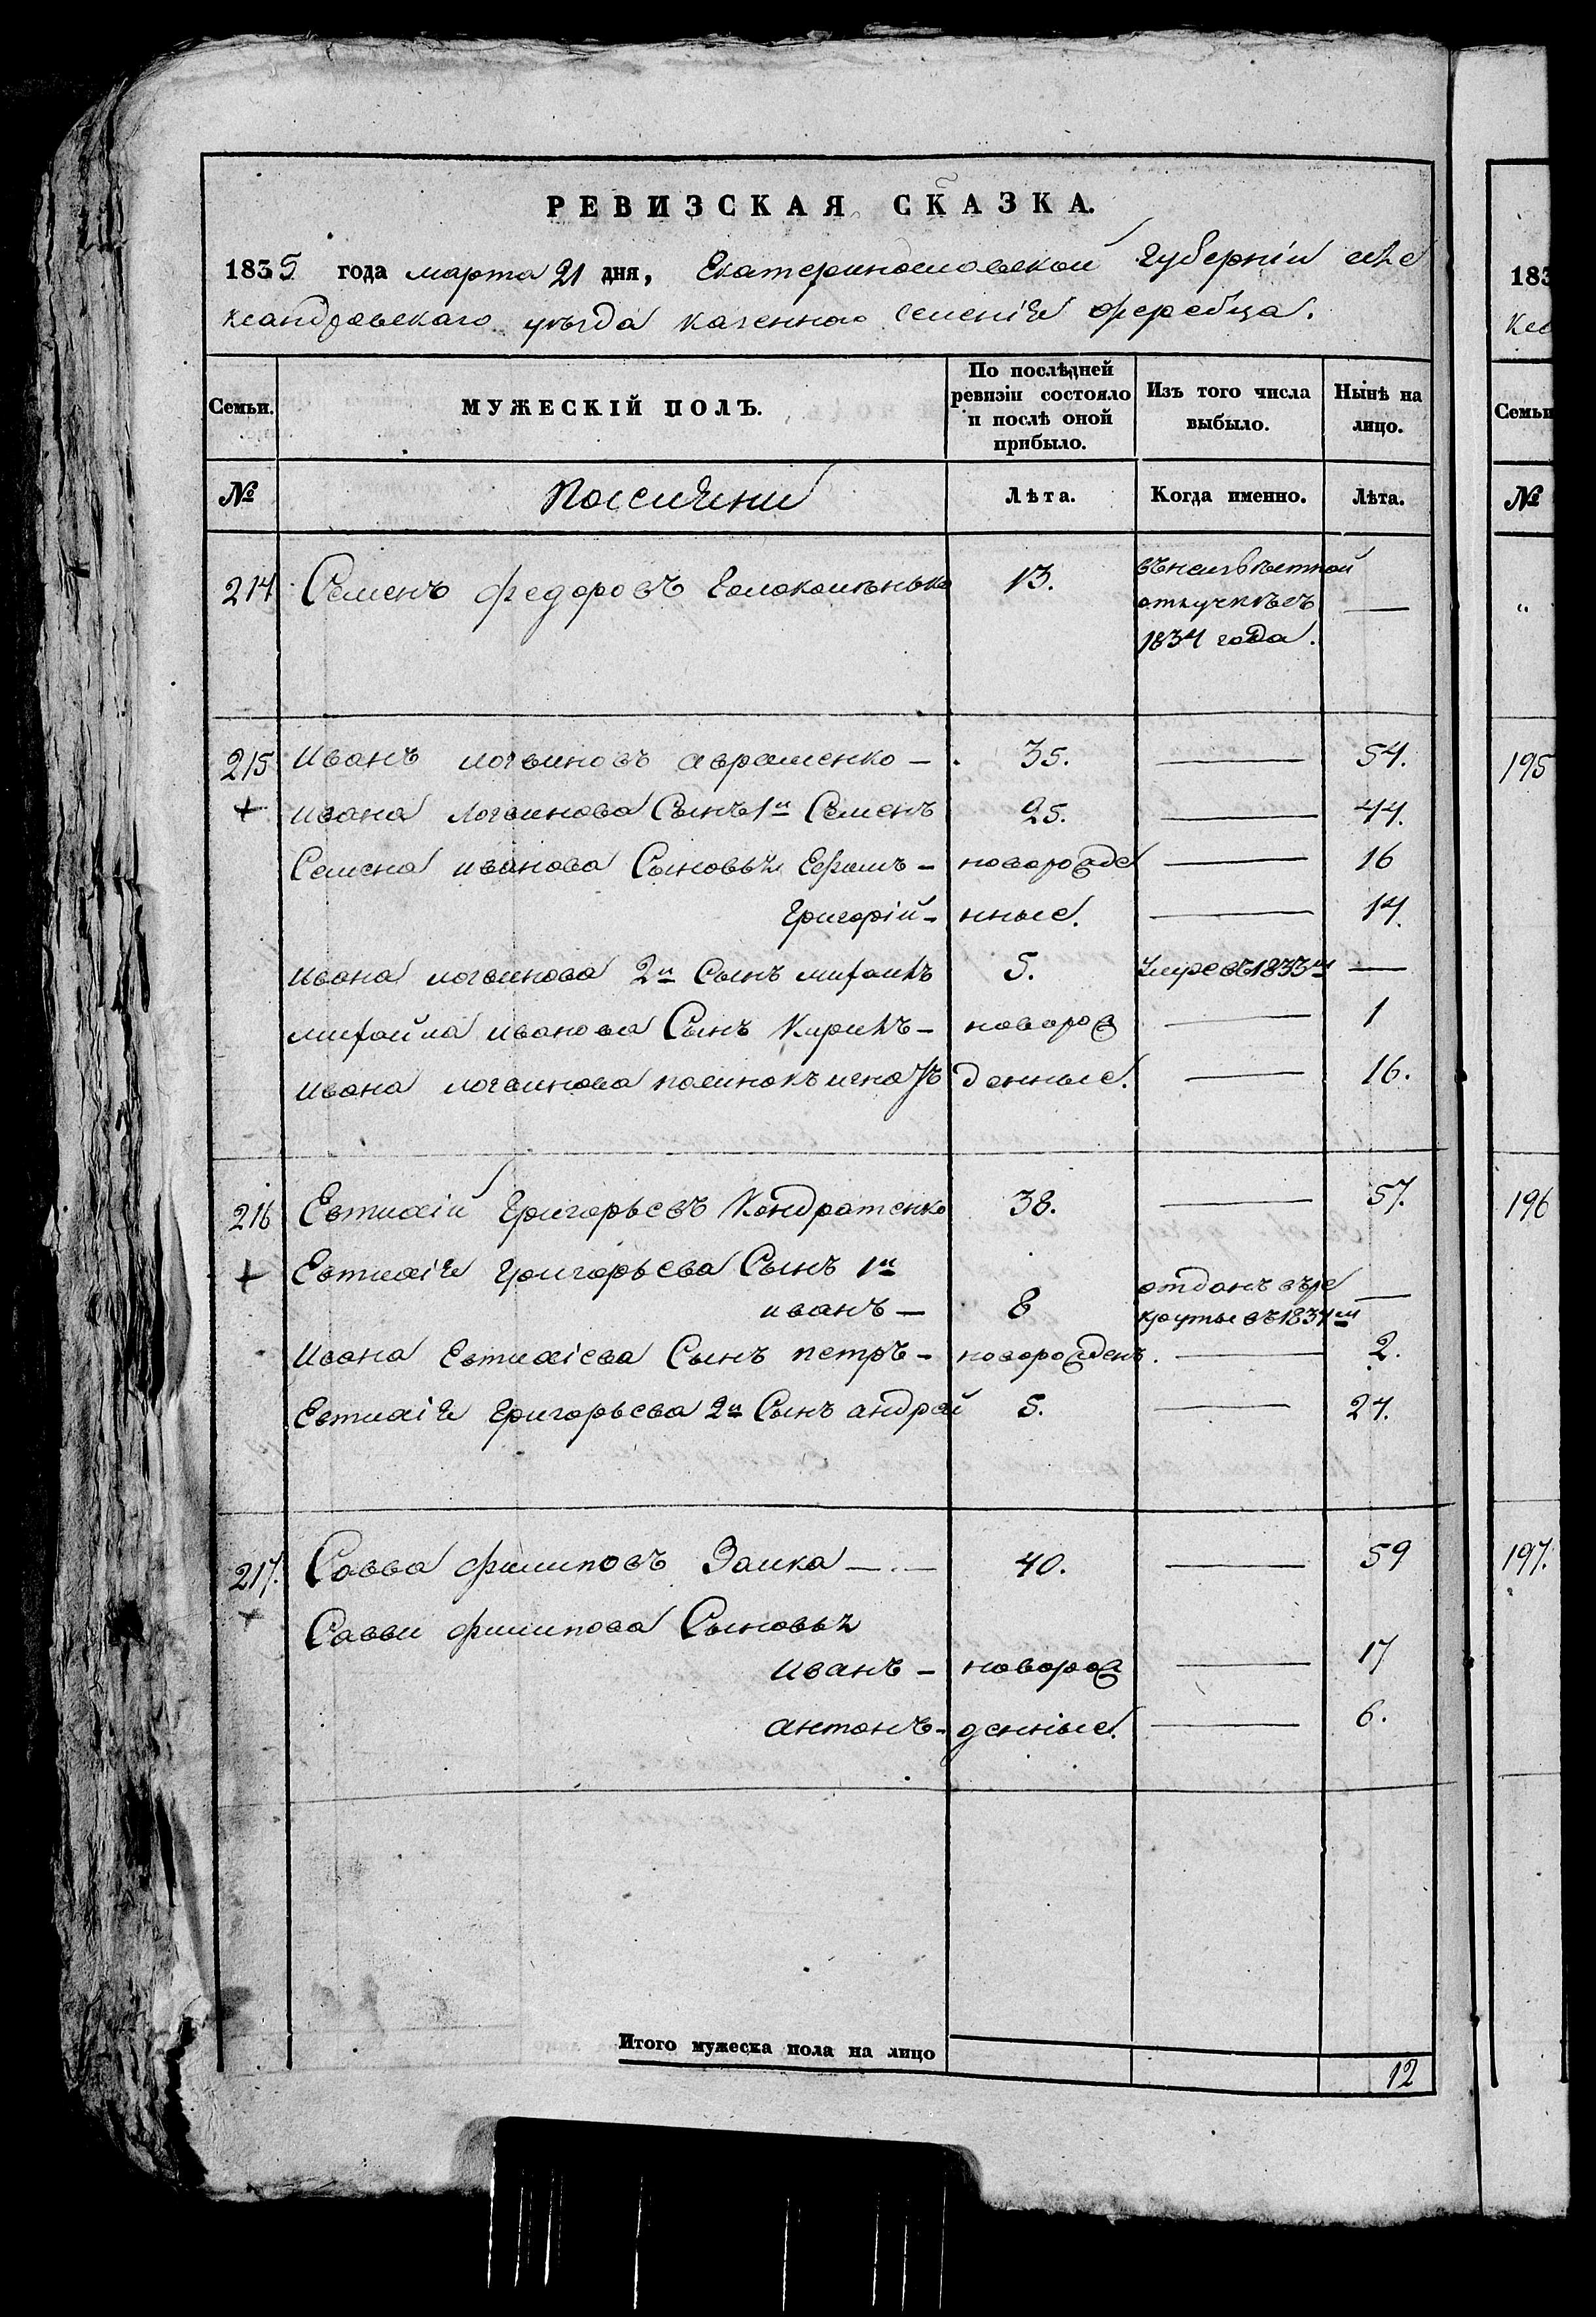 РЕВИЗСКАЯ СКАЗКА.
1835 года марта 21 дня, Екатеринославской Губерніи але
ксандровскаго уѣзда казенного селенія жеребца.
Семьи. МУЖЕСКІЙ ПОЛЪ. По послѣдней ревизіи состояло и послѣ оной прибыло. Изъ того числа выбыло. Нынѣ на лицо.
№ Поселяни Лѣта. Когда именно. Лѣта.
214 Семенъ федоровъ 13. въ неизвѣстной
отлучкѣ съ —
1834 года.
215 Иванъ логвиновъ авраменко — 35. — 54.
+ ивана Логвинова Сынъ 1й Семенъ 25. — 44.
Семена иванова Сыновья Ефимъ — новорожде — 16
Григорій — нные. — 14.
ивана логвинова 2й Сынъ михайлъ 5. умре въ 1833м —
михайла иванова Сынъ Кирилъ — новорож — 1
ивана логвинова игнатъ денные. — 16.
216 Евтихій Григорьевъ Кондратенко 38. — 57.
+ Евтихія Григорьева Сынъ 1й
иванъ — 8 отданъ въ ре
круты въ 1834м —
Ивана Евтихіева Сынъ петръ — новорожденъ. — 2.
Евтихія Григорьева 2й Сынъ андрей 5. — 24.
217. Савва филиповъ Заика — 40. — 59
+ Саввы филипова Сыновья
иванъ — новорож — 17
антонъ — денные. — 6.
Итого мужеска пола на лицо 12
183
Кса
Семьи
№
"
195
196
197.